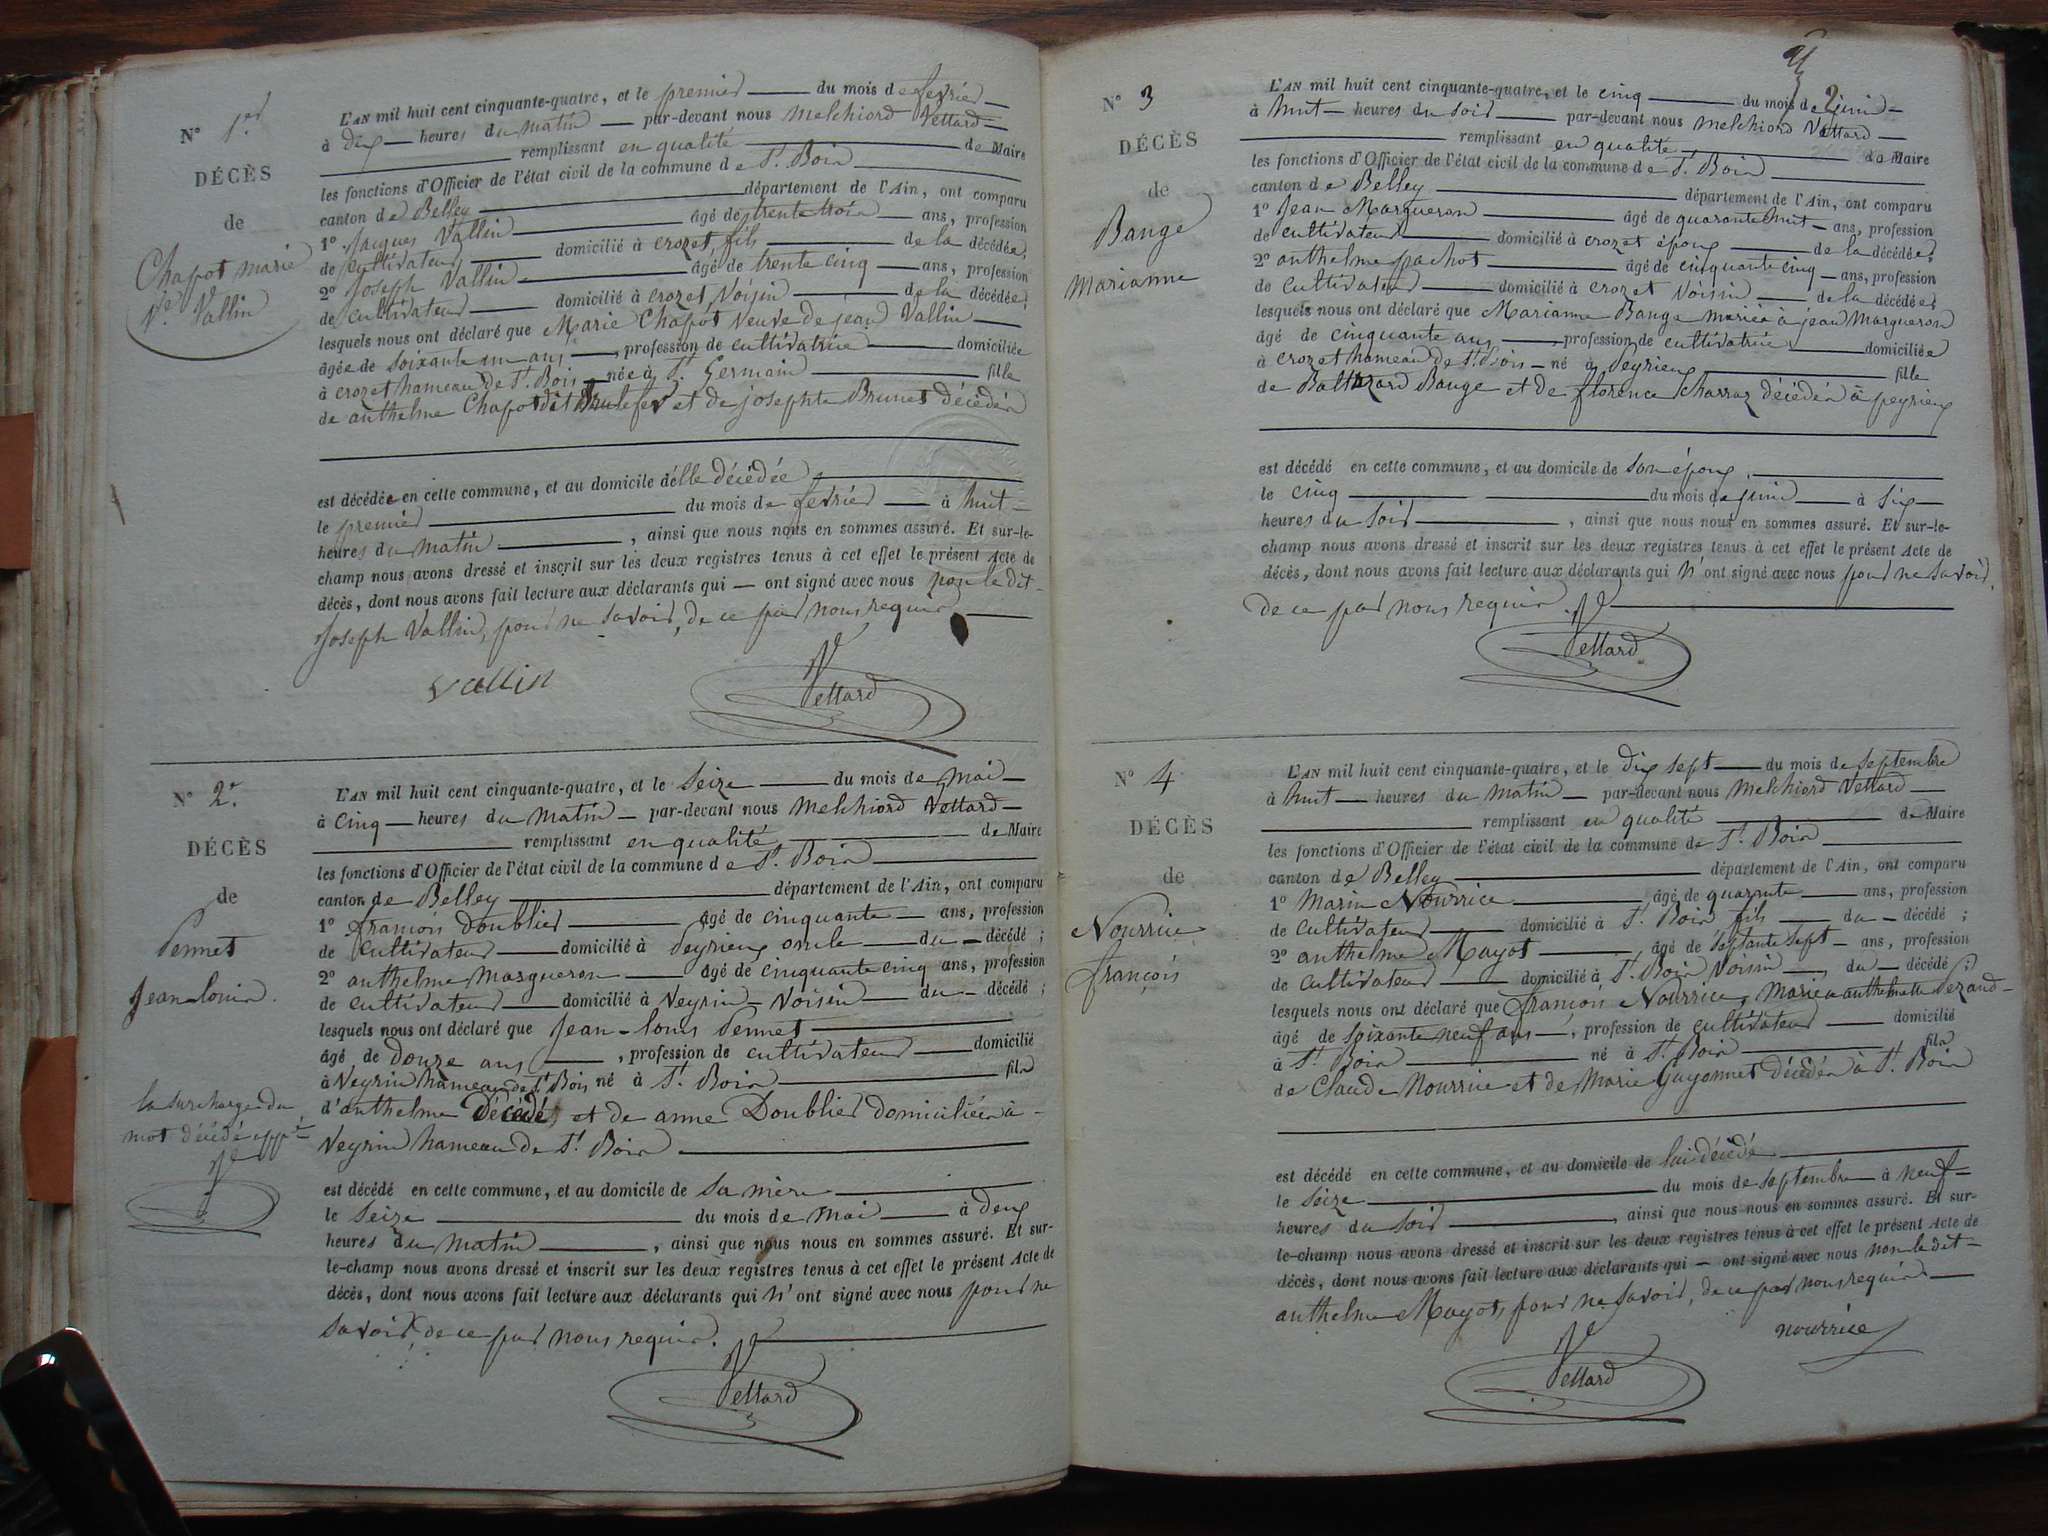 N° 1er
DÉCÈS
de
Chapot marie
Ve Vallin
L'AN mil huit cent cinquante-quatre, et le premier du mois de fevrier
à dix heures du matin par-devant nous melchiord Vettard
remplissant en qualité de Maire
les fonctions d'Officier de l'état civil de la commune de St. Bois
canton de Belley département de l'Ain, ont comparu
1° Jacques Vallin âgé de trente trois ans, profession
de cultivateur domicilié à crozet, fils de la décédée;
2° Joseph Vallin âgé de trente cinq ans, profession
de cultivateur domicilié à crozet, Voisin de la décédée;
lesquels nous ont déclaré que Marie Chapot Veuve de jean Vallin
âgée de soixante un ans, profession de cultivatrice domiciliée
à crozet hameau de St. Bois née à St. Germain fille
de anthelme Chapot dit et de josephte Brunet décédés
est décédée en cette commune, et au domicile d'elle décédée
le premier du mois de fevrier à huit
heures du matin, ainsi que nous nous en sommes assuré. Et sur-le-
champ nous avons dressé et inscrit sur les deux registres tenus à cet effet le présent Acte de
décès, dont nous avons fait lecture aux déclarants qui — ont signé avec nous non le dit
Joseph Vallin, pour ne savoir, de ce par nous requis
Vallin Vettard
N° 2e
DÉCÈS
de
Pennet
Jean-louis
la surcharge du
mot décédé appée
L'AN mil huit cent cinquante-quatre, et le seize du mois de mai
à cinq heures du matin par-devant nous melchiord Vettard
remplissant en qualité de Maire
les fonctions d'Officier de l'état civil de la commune de St. Bois
canton de Belley département de l'Ain, ont comparu
1° françois Doublier âgé de cinquante ans, profession
de cultivateur domicilié à Peyrieux oncle du décédé;
2° anthelme margueron âgé de cinquante cinq ans, profession
de cultivateur domicilié à Veyrin Voisin du décédé;
lesquels nous ont déclaré que jean-louis Pennet
âgé de douze ans, profession de cultivateur domicilié
à Veyrin hameau de St Bois né à St. Bois fils
d'anthelme décédé et de anne Doublier domiciliée à
Veyrin hameau de St. Bois
est décédé en cette commune, et au domicile de sa mère
le seize du mois de mai à deux
heures du matin, ainsi que nous nous en sommes assuré. Et sur-
le-champ nous avons dressé et inscrit sur les deux registres tenus à cet effet le présent Acte de
décès, dont nous avons fait lecture aux déclarants qui n'ont signé avec nous pour ne
savoir, de ce par nous requis.
Vettard
2
N° 3
DÉCÈS
de
Bange
marianne
L'AN mil huit cent cinquante-quatre, et le cinq du mois de juin
à huit heures du soir par-devant nous melchiord Vettard
remplissant en qualité de Maire
les fonctions d'Officier de l'état civil de la commune de St. Bois
canton de Belley département de l'Ain, ont comparu
1° Jean Margueron âgé de quarante huit ans, profession
de cultivateur domicilié à crozet époux de la décédée;
2° anthelme pachot âgé de cinquante cinq ans, profession
de cultivateur domicilié à crozet Voisin de la décédée;
lesquels nous ont déclaré que Marianne Bange mariée à jean Margueron
âgé de cinquante ans, profession de cultivatrice domiciliée
à crozet hameau de St. Bois né à Peyrieux fille
de Baltazard Bange et de florence Charraz décédés à peyrieux
est décédé en cette commune, et au domicile de son époux
le cinq du mois de juin à six
heures du soir, ainsi que nous nous en sommes assuré. Et sur-le-
champ nous avons dressé et inscrit sur les deux registres tenus à cet effet le présent Acte de
décès, dont nous avons fait lecture aux déclarants qui n'ont signé avec nous pour ne savoir,
de ce par nous requis.
Vettard
N° 4
DÉCÈS
de
Nourrice
françois
L'AN mil huit cent cinquante-quatre, et le dix sept du mois de septembre
à huit heures du matin par-devant nous melchiord Vettard
remplissant en qualité de Maire
les fonctions d'Officier de l'état civil de la commune de St. Bois
canton de Belley département de l'Ain, ont comparu
1° Marin Nourrice, âgé de quarante ans, profession
de cultivateur domicilié à St. Bois fils du décédé;
2° anthelme Mayot, âgé de septante sept ans, profession
de cultivateur domicilié à St. Bois Voisin du décédé;
lesquels nous ont déclaré que françois Nourrice, marié a anthelmette Pezand
âgé de soixante neuf ans, profession de cultivateur domicilié
à St. Bois né à St. Bois fils
de Claude Nourrice et de Marie Guyonnet décédés à St. Bois
est décédé en cette commune, et au domicile de lui décédé
le seize du mois de septembre à neuf
heures du soir, ainsi que nous nous en sommes assuré. Et sur-
le-champ nous avons dressé et inscrit sur les deux registres tenus à cet effet le présent Acte de
décès, dont nous avons fait lecture aux déclarants qui — ont signé avec nous non le dit
anthelme Mayot, pour ne savoir, de ce par nous requis
nourrice
Vettard